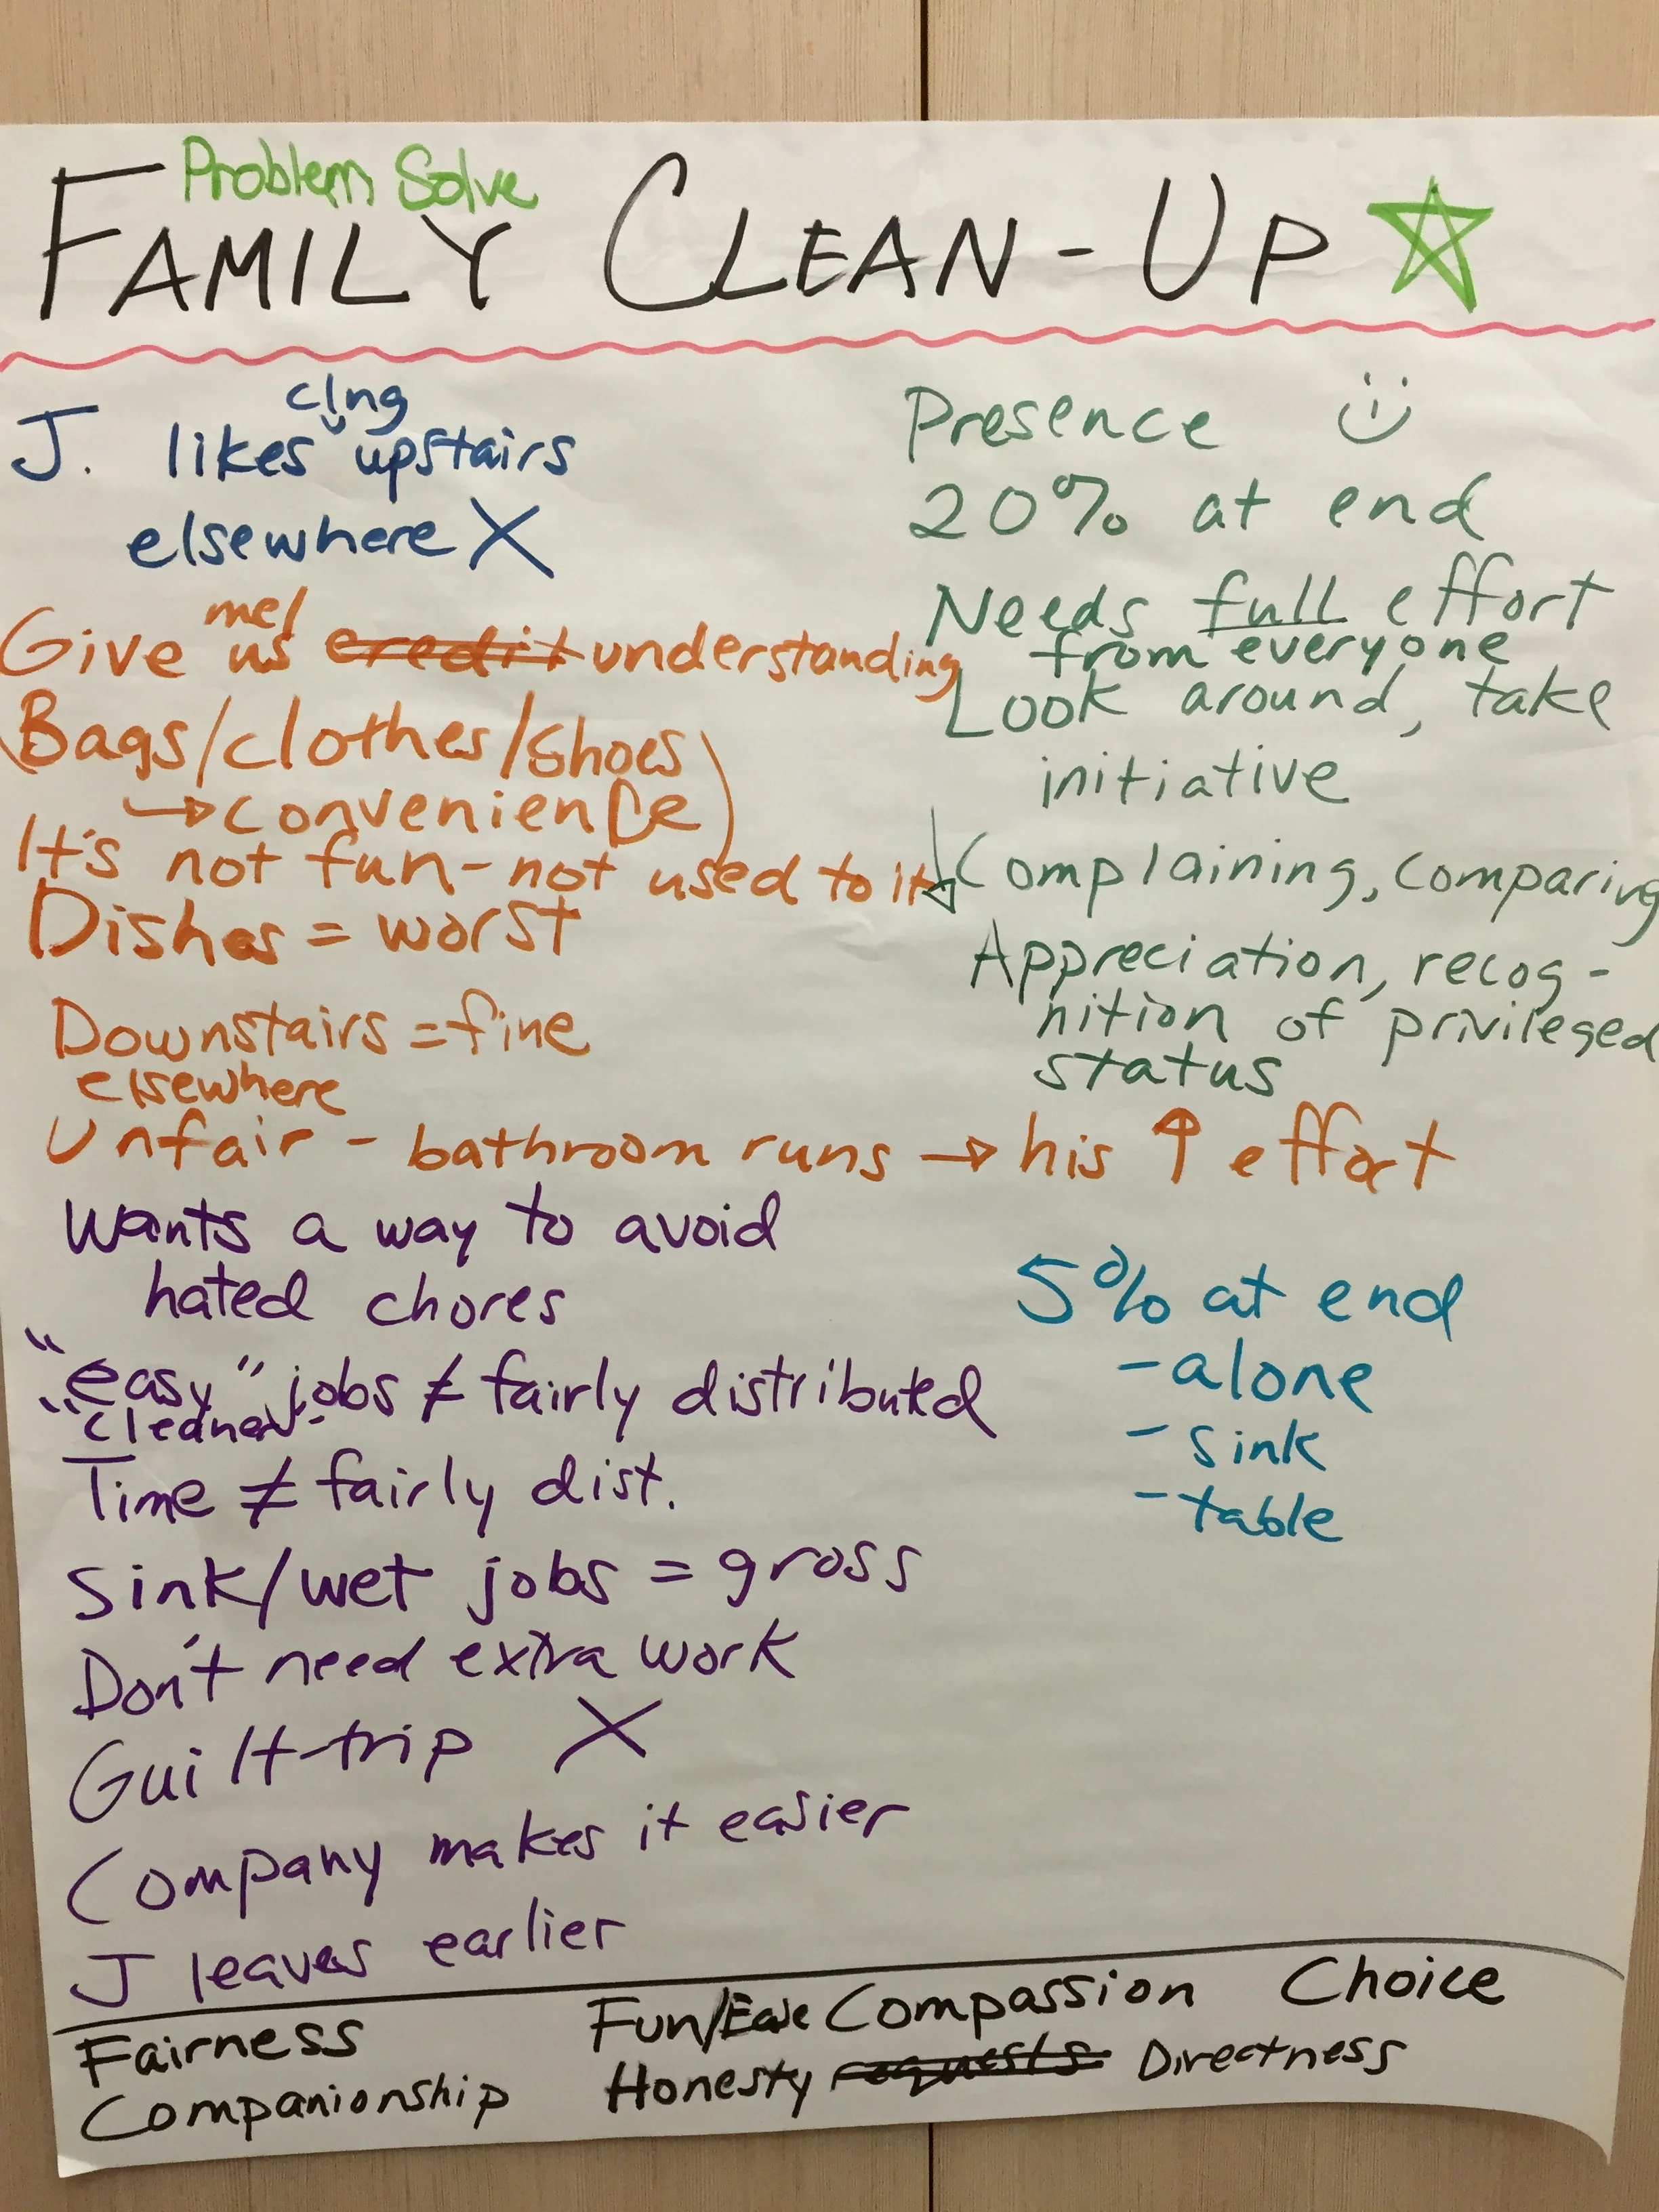 Problem Solve
FAMILY CLEAN-UP
clng
J. likes upstairs
elsewhere X
me/
Give us credit understanding
(Bags/clothes/shoes
→ convenience)
It's not fun - not used to it
Dishes = worst
Downstairs = fine
elsewhere
Unfair - bathroom runs → his ↑ effort
Wants a way to avoid
hated chores
"easy" jobs ≠ fairly distributed
"cleaner"
Time ≠ fairly dist.
Sink/wet jobs = gross
Don't need extra work
Guilt-trip X
Company makes it easier
J leaves earlier
Presence
20% at end
Needs full effort
from everyone
Look around, take
initiative
↓ Complaining, comparing
Appreciation, recog-
nition of privileged
status
5% at end
- alone
- sink
- table
Fairness Fun/Ease Compassion Choice
Companionship Honesty requests Directness